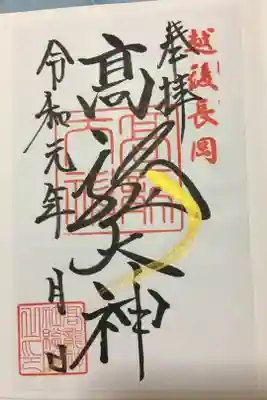 越後長岡
奉拝
高龍大神
令和元年 月 日